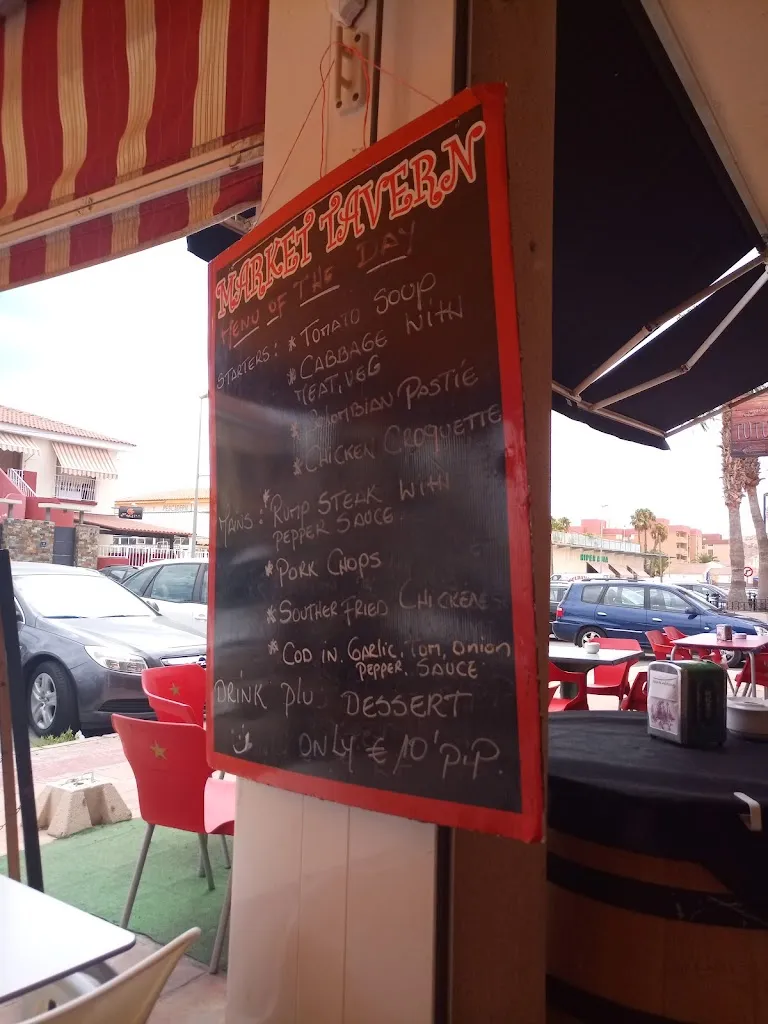 MARKET TAVERN
MENU OF THE DAY
STARTERS: * TOMATO SOUP
* CABBAGE WITH
MEAT, VEG
* COLOMBIAN PASTIE
* CHICKEN CROQUETTE
MAINS: * RUMP STEAK WITH
PEPPER SAUCE
* PORK CHOPS
* SOUTHER FRIED CHICKEN
* COD IN. GARLIC, TOM, ONION
PEPPER. SAUCE
DRINK PLUS DESSERT
ONLY € 10' P.P.